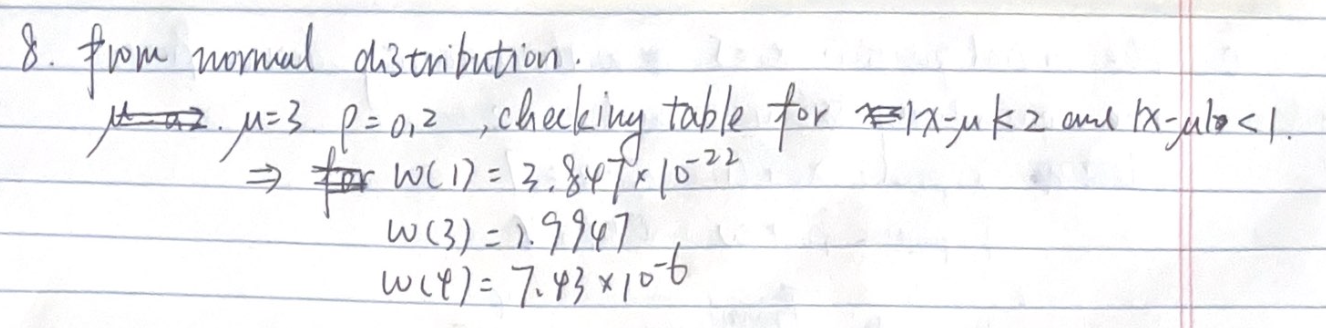 8. from normal distribution.
μ=3 ρ=0,2 , checking table for |x-μ|<2 and |x-μ|<1.
⇒ w(1) = 3.847×10⁻²²
w(3) = 1.9947
w(4) = 7.43×10⁻⁶